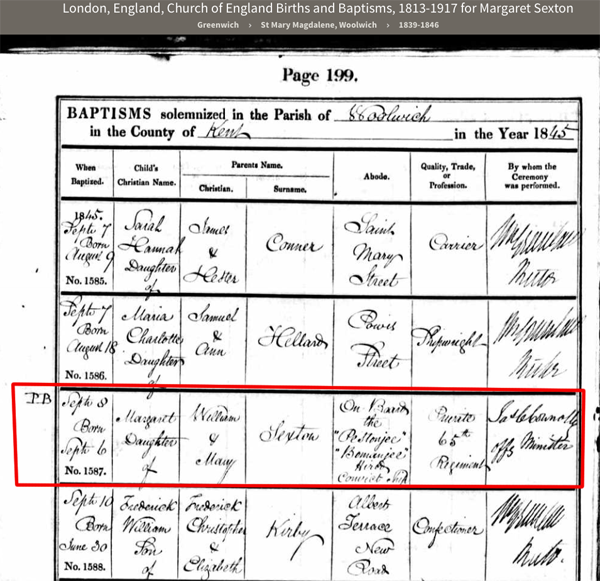 London, England, Church of England Births and Baptisms, 1813-1917 for Margaret Sexton
Greenwich › St Mary Magdalene, Woolwich › 1839-1846
Page 199.
BAPTISMS solemnized in the Parish of Woolwich
in the County of Kent in the Year 1845
When Baptized.
Child's Christian Name.
Parents Name.
Christian.
Surname.
Abode.
Quality, Trade, or Profession.
By whom the Ceremony was performed.
1845.
Septr 7
Born
August 9
No. 1585.
Sarah
Hannah
Daughter
of
James
&
Hester
Conner
Saint
Mary
Street
Carrier
Septr 7
Born
August 18
No. 1586.
Maria
Charlotte
Daughter
of
Samuel
&
Ann
Hellard
Powis
Street
P.B
Septr 8
Born
Septr 6
No. 1587.
Margaret
Daughter
of
William
&
Mary
Sexton
On Board
the
"Pestonjee"
"Bomanjee"
Hired
Convict Ship
Private
65th
Regiment
Minister
Septr 10
Born
June 30
No. 1588.
Frederick
William
Son
of
Frederick
Christopher
&
Elizabeth
Kirby
Albert
Terrace
New
Road
Confectioner